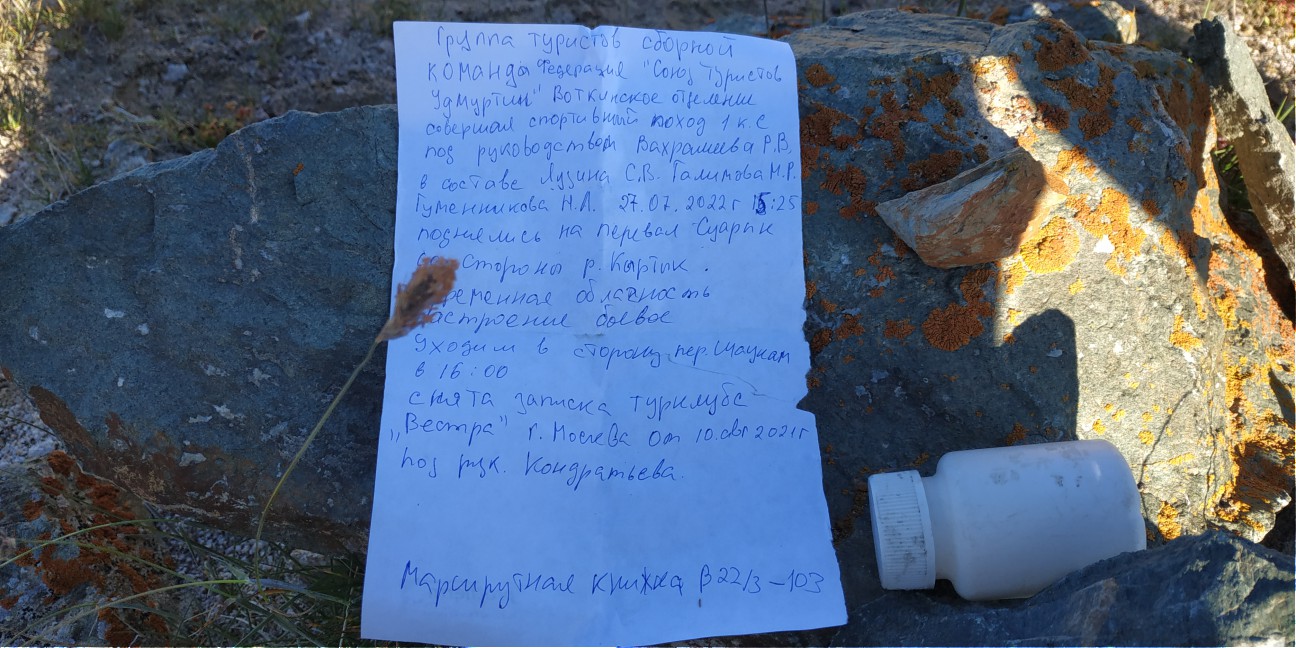 Группа туристов сборной
команды Федерация "Союз Туристов
Удмуртии" Воткинское отделение
совершая спортивный поход 1 к.с
под руководством Вахрашеева Р.В.
в составе Лузина С.В. Галимова М.Р.
Гуменникова Н.А. 27.07.2022г 15:25
поднялись на перевал Суарык
со стороны р. Кыртык.
Переменная облачность
настроение боевое
Уходим в сторону пер. Шаукам
в 16:00
снята записка турклуба
„Вестра" г. Москва от 10.авг 2021г
под рук. Кондратьева.
Маршрутная книжка В22/3-103